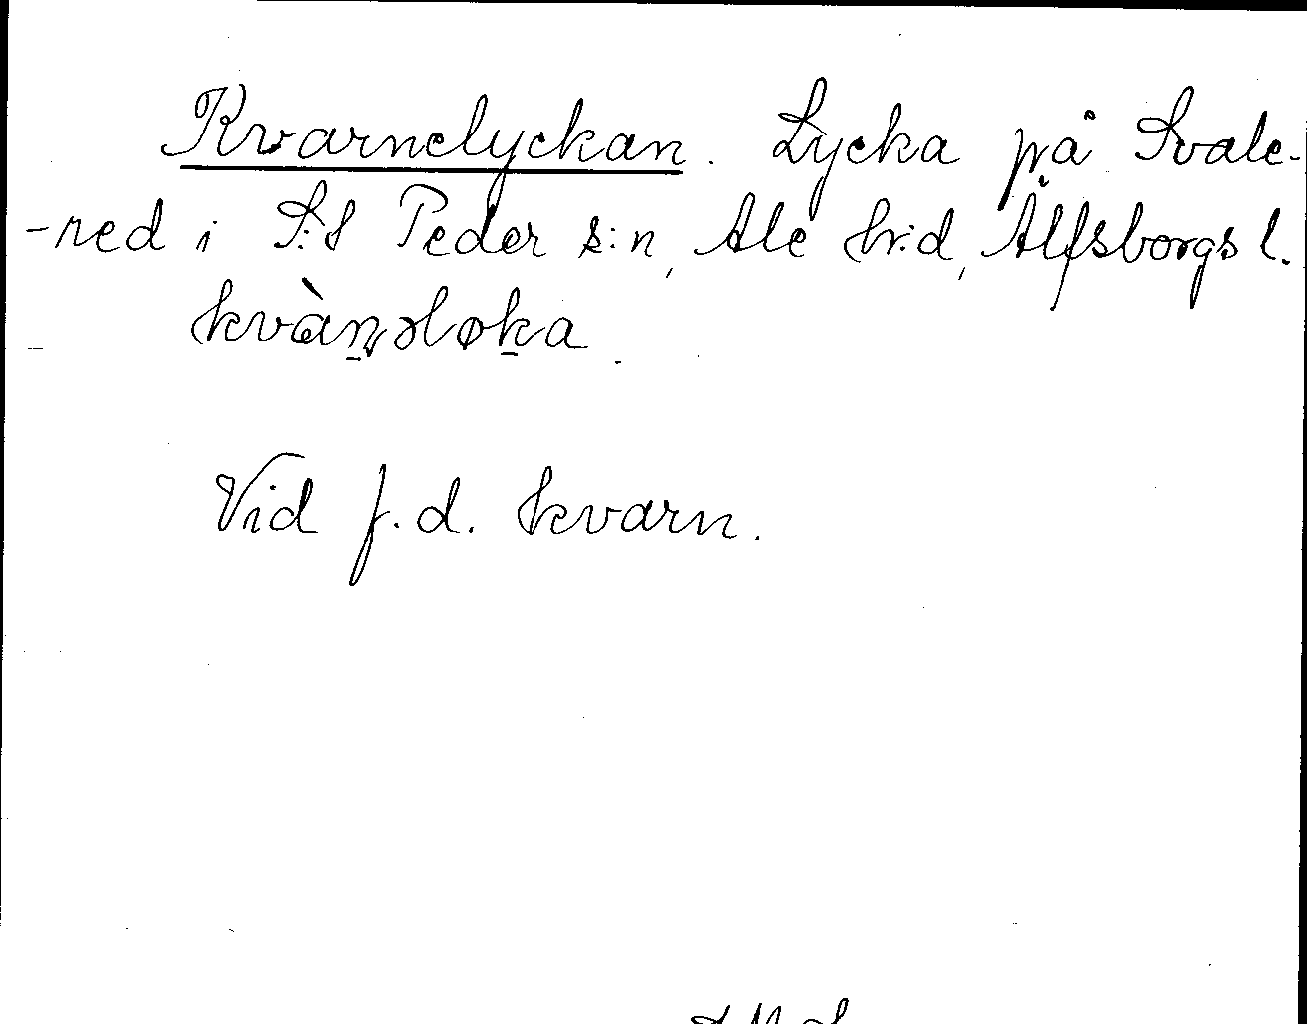 Kvarnelyckan. Lycka på Svale-
-red i S:t Peder s:n, Ale hr:d, Älfsborgs l.
kvàn̠əløk̠a.
Vid f.d. kvarn.